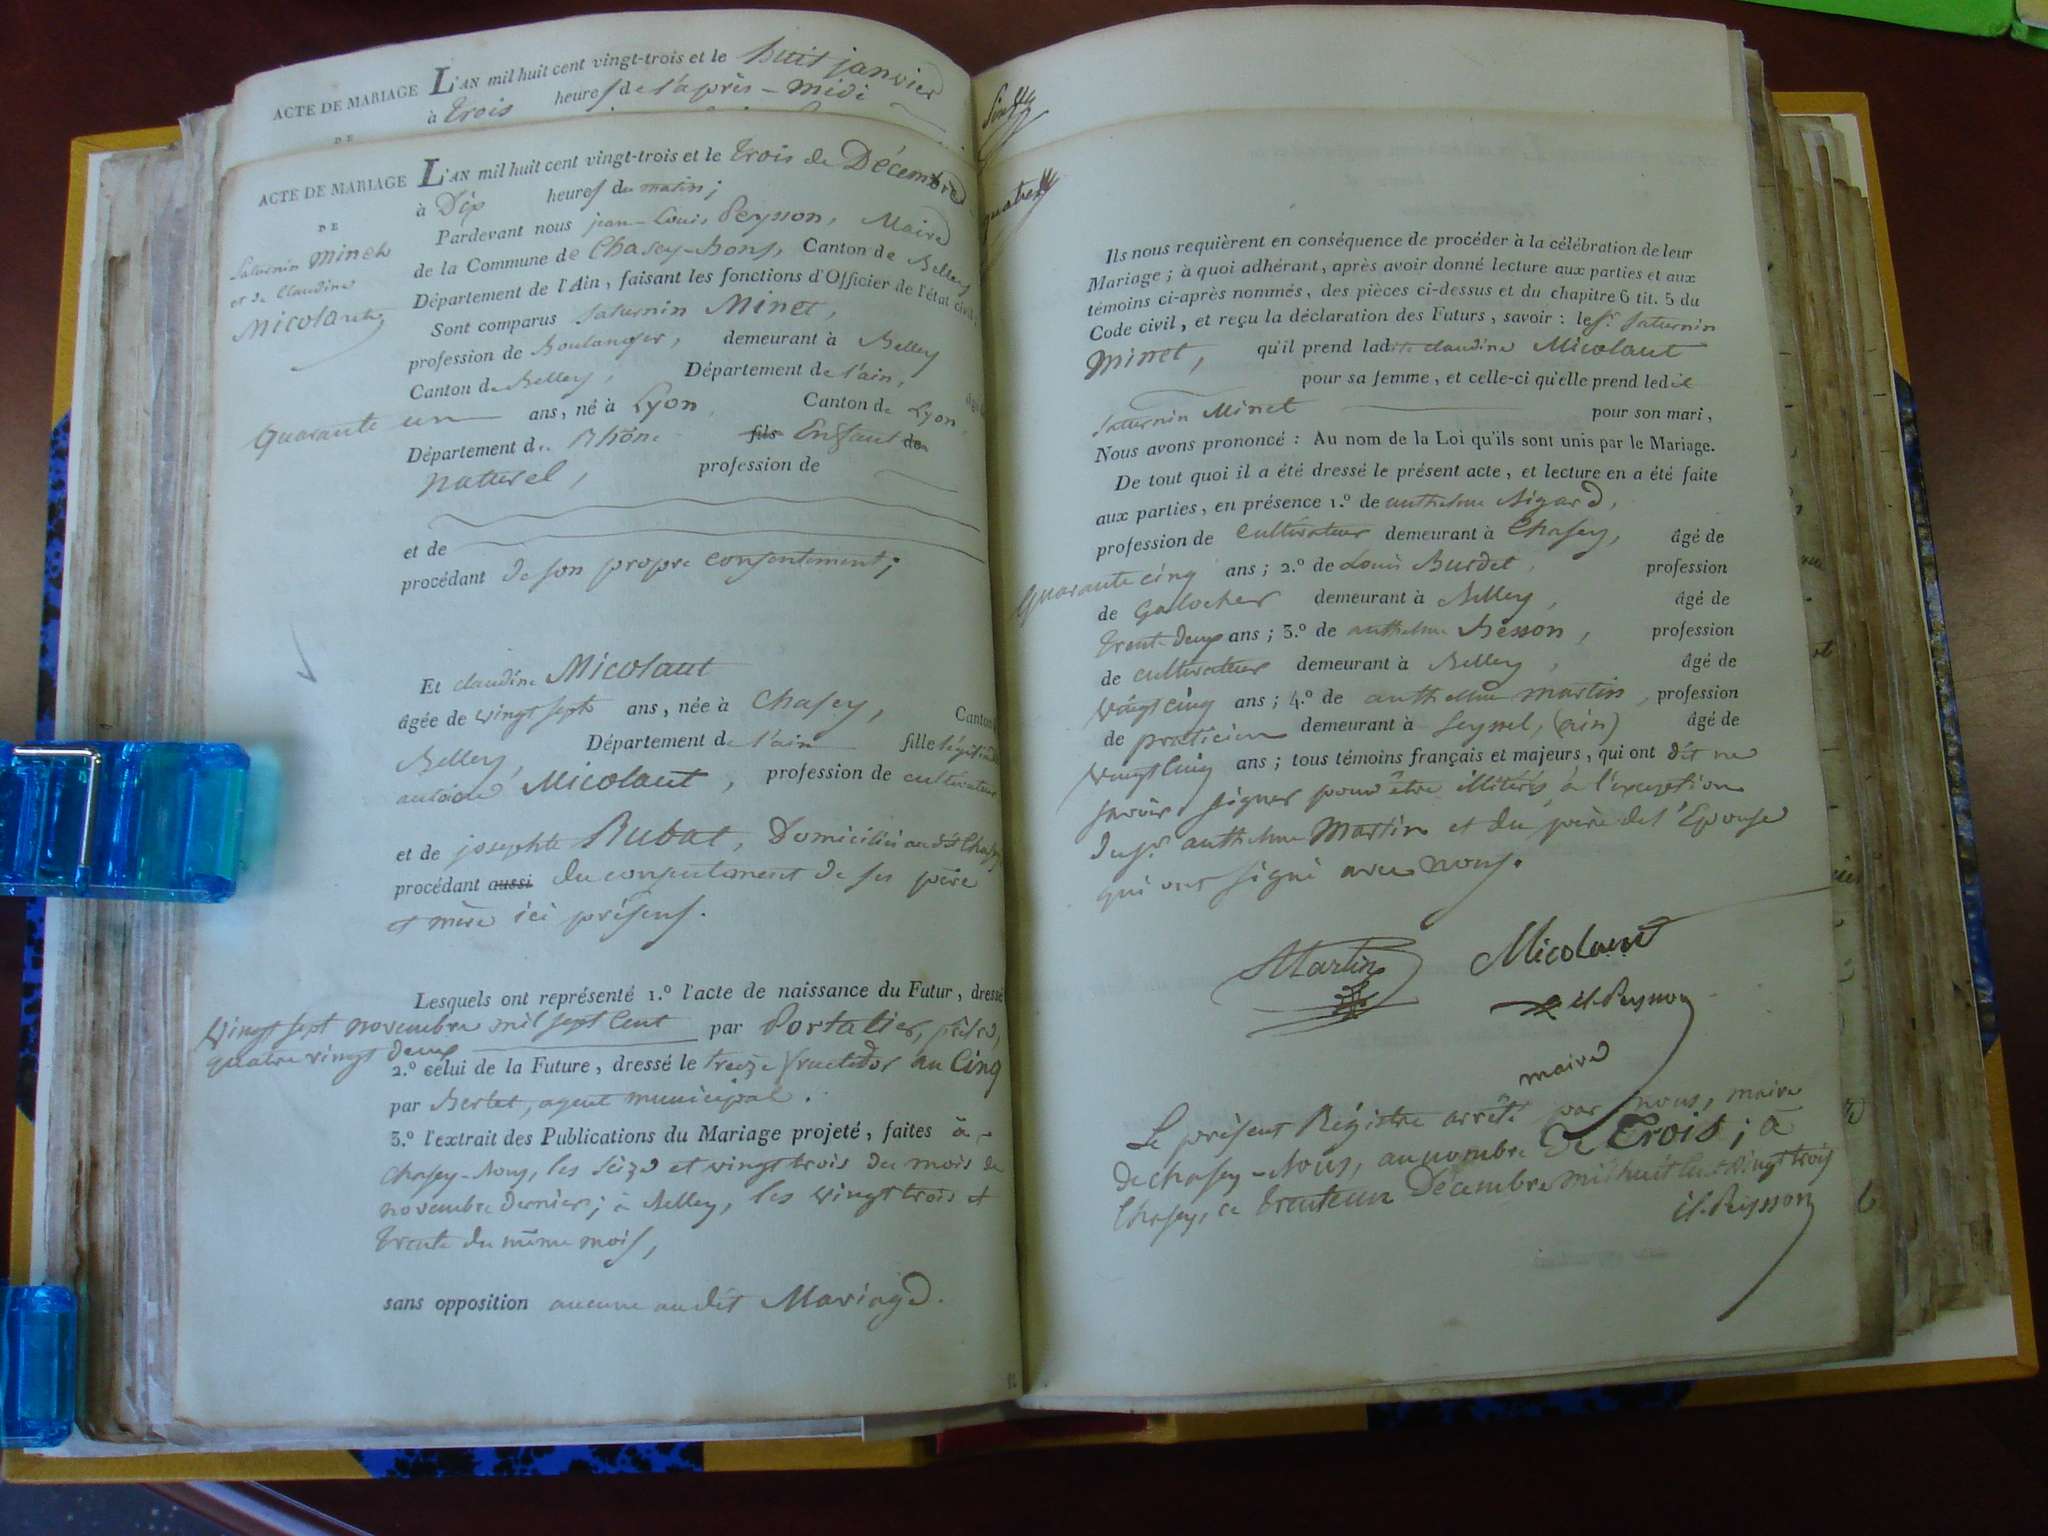 ACTE DE MARIAGE L'AN mil huit cent vingt-trois et le huit janvier
à trois heures de l'après-midi
DE
ACTE DE MARIAGE L'AN mil huit cent vingt-trois et le trois de Décembre
à Dix heures du matin;
DE
Saturnin Minet
et de Claudine
Micolaut
Pardevant nous jean-Louis Peysson, Maire
de la Commune de Chasey-bons, Canton de Belley
Département de l'Ain, faisant les fonctions d'Officier de l'état civil.
Sont comparus Saturnin Minet,
profession de Boulanger, demeurant à Belley
Canton de Belley, Département de l'ain, âgé
Quarante un ans, né à Lyon, Canton de Lyon,
Département d.. Rhône fils Enfant de
naturel, profession de
et de
procédant de son propre consentement;
Et claudine Micolaut
âgée de vingt sept ans, née à Chasey, Canton
Belley, Département de l'ain fille légitime
antoine Micolaut, profession de cultivateur
et de josephte Rubat, Domiciliés audit Chasey
procédant aussi du consentement de ses père
et mère ici présens.
Lesquels ont représenté 1.º l'acte de naissance du Futur, dressé
vingt sept novembre mil sept cent par Portalier, prêtre,
quatre vingt deux
2.º celui de la Future, dressé le treize fructidor an Cinq
par Bertet, agent municipal.
3.º l'extrait des Publications du Mariage projeté, faites à
chasey-bons, les seize et vingt trois du mois de
novembre dernier; à Belley, les vingt trois et
trente du même mois,
sans opposition aucune audit Mariage.
quatre
Ils nous requièrent en conséquence de procéder à la célébration de leur
Mariage; à quoi adhérant, après avoir donné lecture aux parties et aux
témoins ci-après nommés, des pièces ci-dessus et du chapitre 6 tit. 5 du
Code civil, et reçu la déclaration des Futurs, savoir: le sr. Saturnin
Minet, qu'il prend ladite claudine Micolaut
pour sa femme, et celle-ci qu'elle prend ledit
Saturnin Minet pour son mari,
Nous avons prononcé: Au nom de la Loi qu'ils sont unis par le Mariage.
De tout quoi il a été dressé le présent acte, et lecture en a été faite
aux parties, en présence 1.º de anthelme Sigard,
profession de Cultivateur demeurant à Chasey, âgé de
Quarante cinq ans; 2.º de Louis Burdet, profession
de Galocher demeurant à Belley, âgé de
trent-deux ans; 3.º de anthelme Besson, profession
de cultivateur demeurant à Belley, âgé de
vingt cinq ans; 4.º de anthelme martin, profession
de praticien demeurant à Seyssel, (ain) âgé de
vingt cinq ans; tous témoins français et majeurs, qui ont dit ne
savoir signer pour être illitérés à l'exception
du sr. anthelme Martin et du père de l'Epouse
qui ont signé avec nous.
Martin Micolaut
jl. Peysson
maire
Le présent Régistre arrêté par nous, maire
de chasey-bons, au nombre de trois; à
Chasey, ce trente un Décembre mil huit cent vingt trois
jl. Peysson